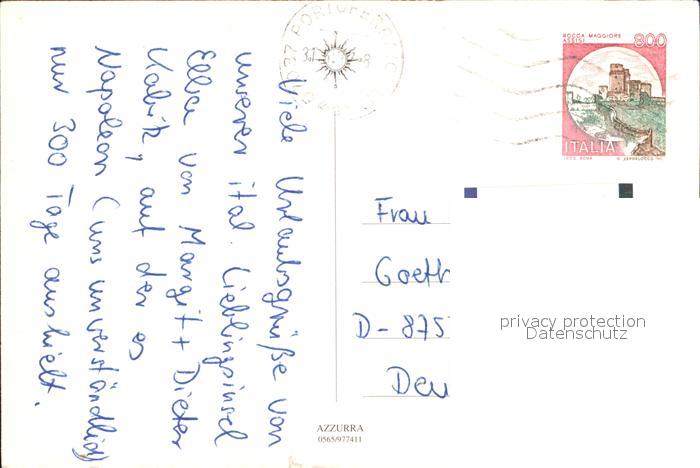 Viele Urlaubsgrüße von
unserer ital. Lieblingsinsel
Elba von Margit + Dieter
auf der es
Napoleon (uns unverständlich)
nur 300 Tage aushielt.
PORTOFERR
ROCCA MAGGIORE
ASSISI
800
ITALIA
Frau
Goeth
D-875
Deu
privacy protection
Datenschutz
AZZURRA
0565/977411